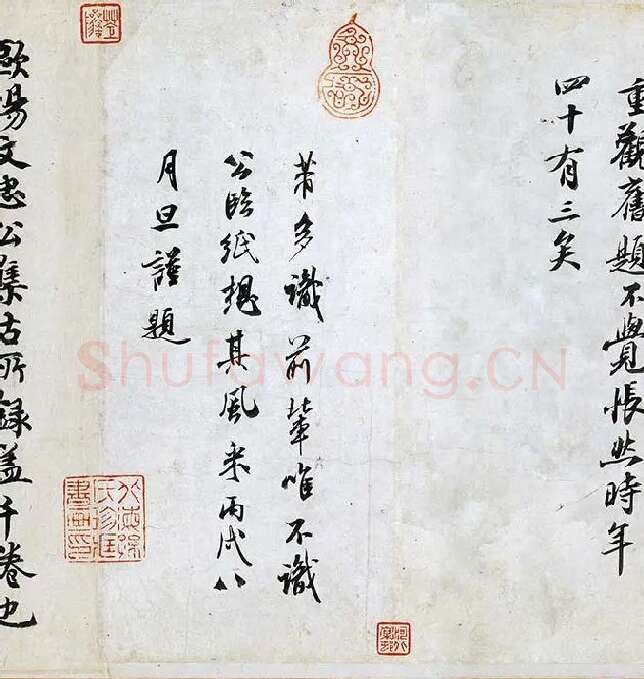 重觀舊題不覺悵然時年
四十有三矣
芾多識前輩唯不識
公臨紙想其風采丙戌八
月旦謹題
歐陽文忠公集古所録盖千卷也
Shufawang.CN